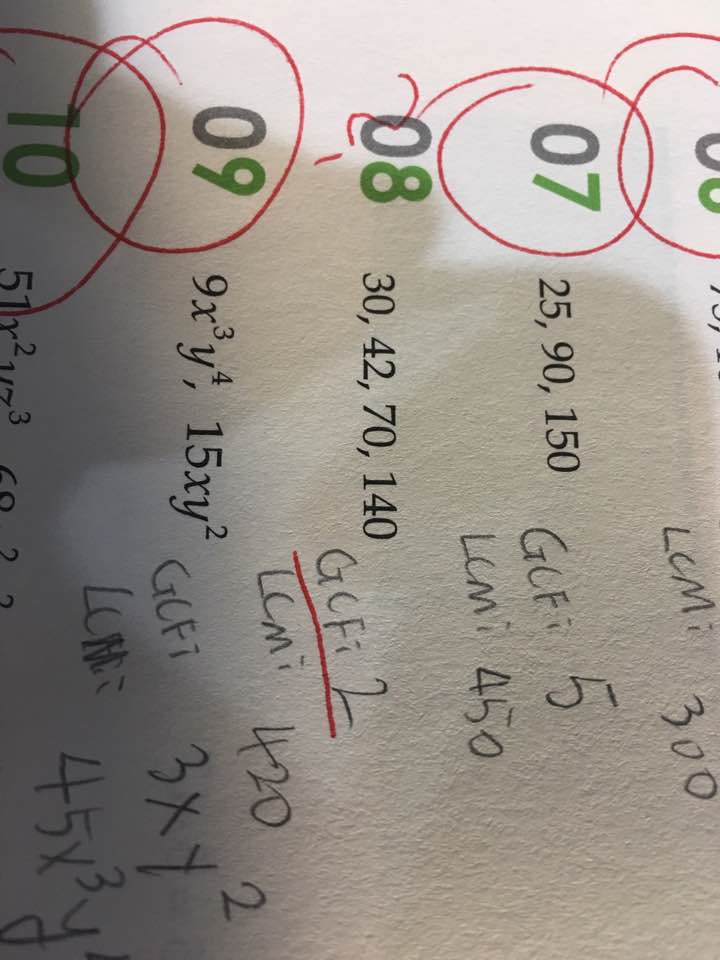 LCM: 300
07 25, 90, 150 GCF: 5
LCM: 450
08 30, 42, 70, 140 GCF: 2
LCM: 420
09 9x³y⁴, 15xy² GCF: 3xy²
LCM: 45x³y
10 51x²yz³